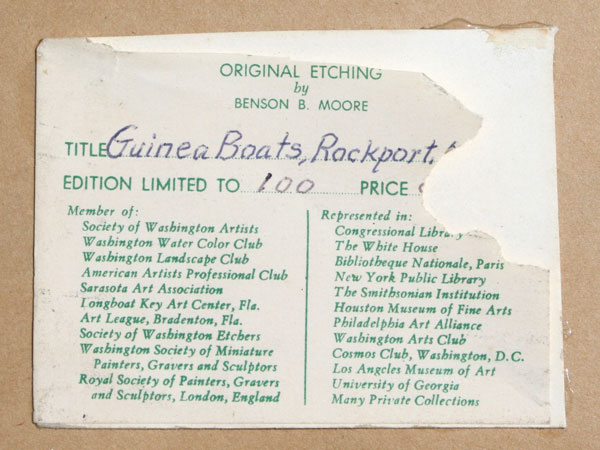 ORIGINAL ETCHING
by
BENSON B. MOORE
TITLE Guinea Boats, Rockport,
EDITION LIMITED TO 100 PRICE
Member of:
Society of Washington Artists
Washington Water Color Club
Washington Landscape Club
American Artists Professional Club
Sarasota Art Association
Longboat Key Art Center, Fla.
Art League, Bradenton, Fla.
Society of Washington Etchers
Washington Society of Miniature
Painters, Gravers and Sculptors
Royal Society of Painters, Gravers
and Sculptors, London, England
Represented in:
Congressional Library
The White House
Bibliotheque Nationale, Paris
New York Public Library
The Smithsonian Institution
Houston Museum of Fine Arts
Philadelphia Art Alliance
Washington Arts Club
Cosmos Club, Washington, D.C.
Los Angeles Museum of Art
University of Georgia
Many Private Collections